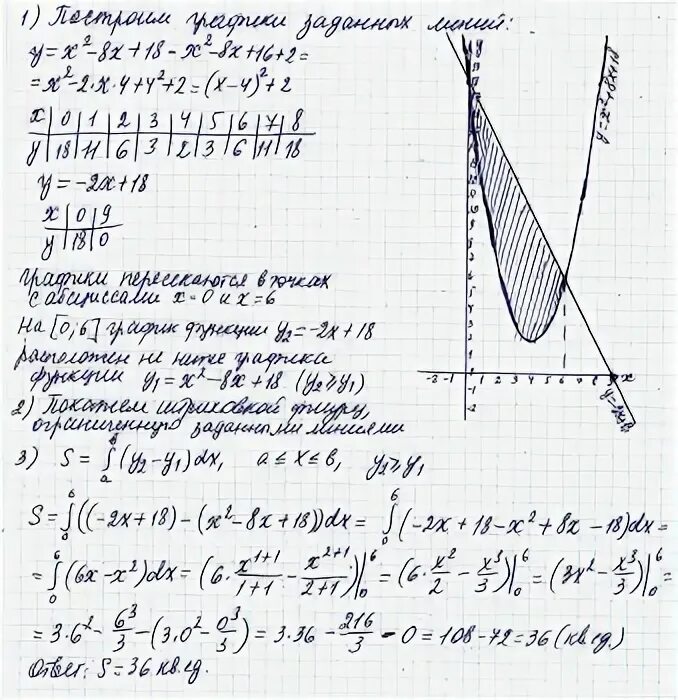 1) Построим графики заданных линий:
y = x² - 8x + 18 - x² - 8x + 16 + 2 =
= x² - 2·x·4 + 4² + 2 = (x - 4)² + 2
x | 0 | 1 | 2 | 3 | 4 | 5 | 6 | 7 | 8
y | 18 | 11 | 6 | 3 | 2 | 3 | 6 | 11 | 18
y = -2x + 18
x | 0 | 9
y | 18 | 0
графики пересекаются в точках
с абсциссами x = 0 и x = 6
На [0; 6] график функции y₂ = -2x + 18
расположен не ниже графика
функции y₁ = x² - 8x + 18 (y₂ ≥ y₁)
2) Покажем штриховкой фигуру,
ограниченную заданными линиями
3) S = ∫ₐᵇ (y₂ - y₁) dx, a ≤ x ≤ b, y₂ ≥ y₁
S = ∫₀⁶ ((-2x + 18) - (x² - 8x + 18)) dx = ∫₀⁶ (-2x + 18 - x² + 8x - 18) dx =
= ∫₀⁶ (6x - x²) dx = (6 · x¹⁺¹/1+1 - x²⁺¹/2+1)|₀⁶ = (6 · x²/2 - x³/3)|₀⁶ = (3x² - x³/3)|₀⁶ =
= 3·6² - 6³/3 - (3·0² - 0³/3) = 3·36 - 216/3 - 0 = 108 - 72 = 36 (кв.ед.)
Ответ: S = 36 кв.ед.
y
-2 -1 1 2 3 4 5 6 7 8 9 x